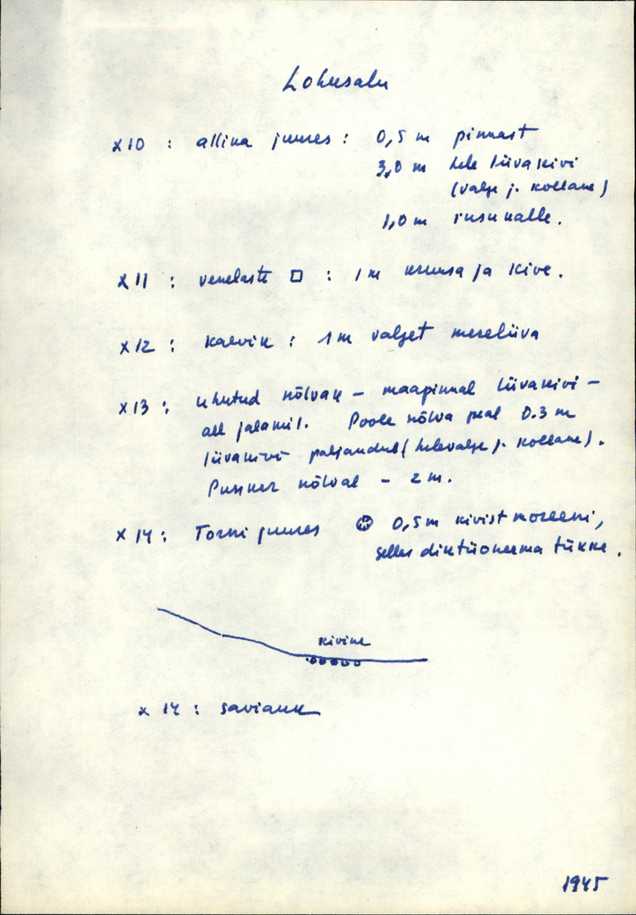 Lohusalu
x10 : allika juures : 0,5 m pinnast
3,0 m hele liivakivi
(valge j. kollane)
1,0 m rusukalle.
x11 : venelaste □ : 1 m kruusa ja kive.
x12 : kaevik : 1 m valget mereliiva
x13 : uhutud nõlvak – maapinnal liivakivi –
all jalamil. Poole nõlva peal 0.3 m
liivakivi paljandub (helevalge j. kollane).
Pusner nõlval – 2 m.
x 14 : Torni juures 0,5 m kivist moreeni,
selles diktüoneema tükke.
kivine
x 14 : saviauk
1945